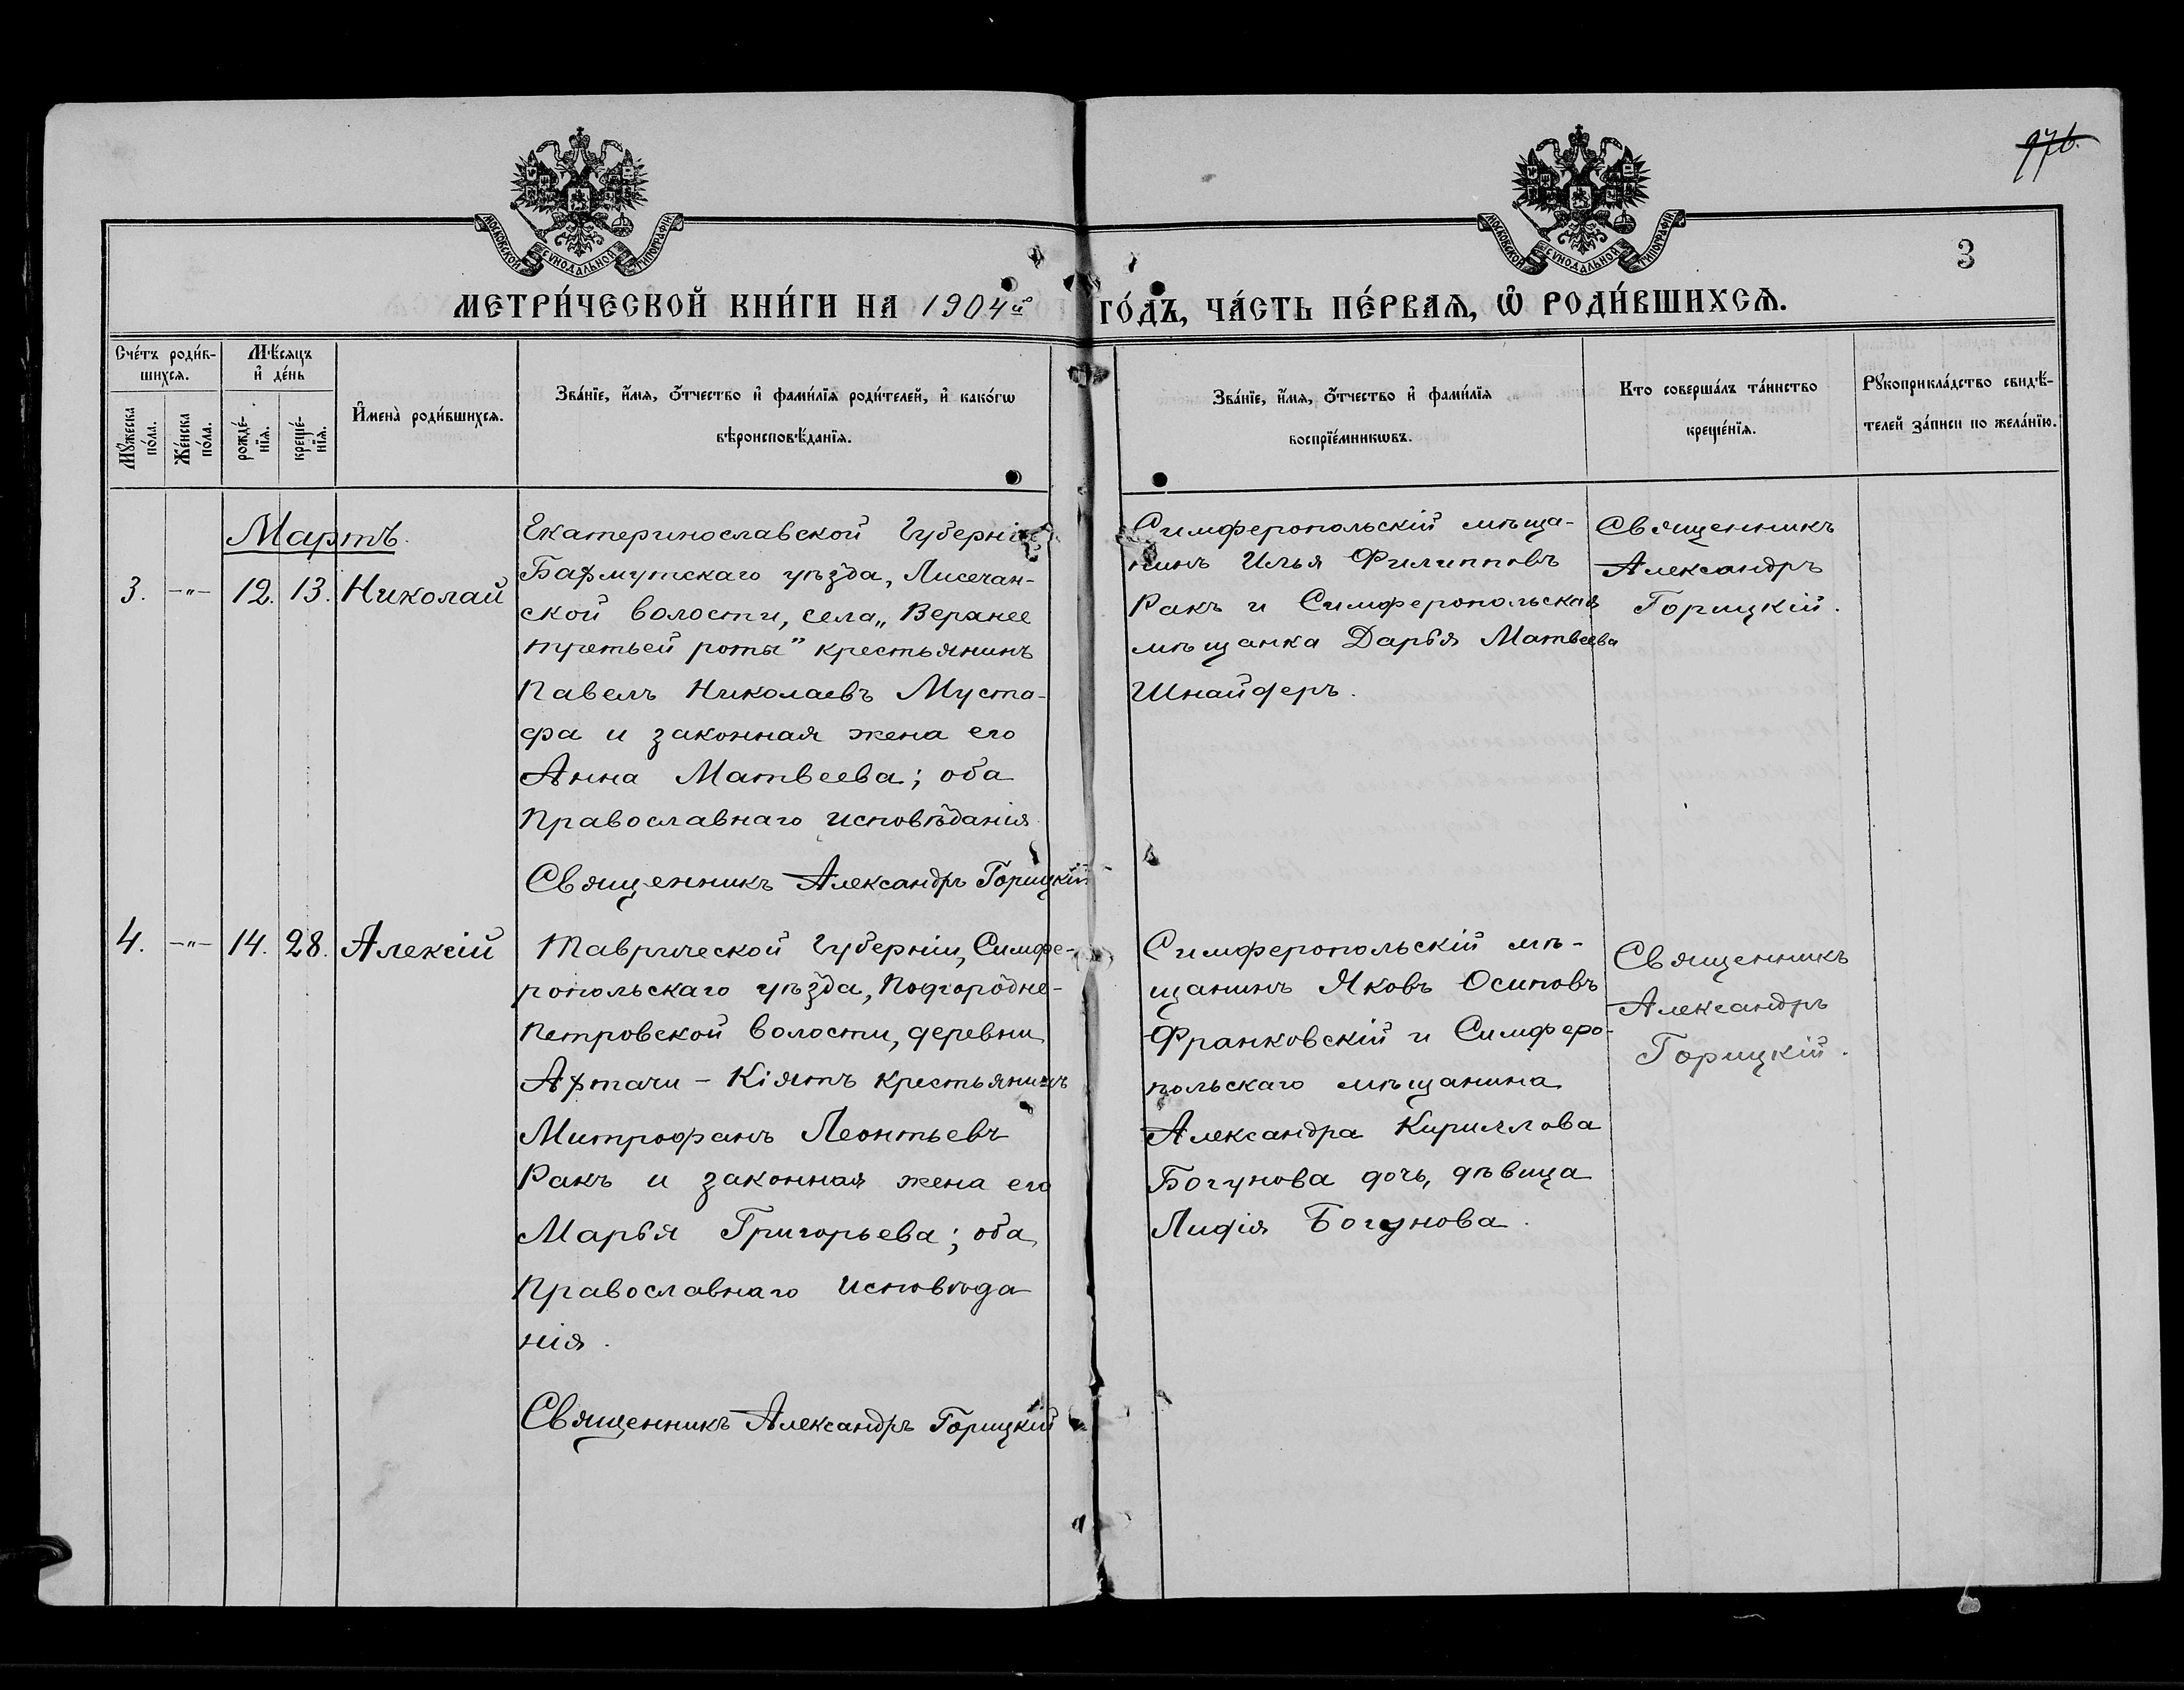 976.
МОСКОВСКОЙ СѴНОДАЛЬНОЙ ТИПОГРАФІИ
МОСКОВСКОЙ СѴНОДАЛЬНОЙ ТИПОГРАФІИ
3
МЕТРИ́ЧЕСКОЙ КНИ́ГИ НА 1904й ГО́ДЪ, ЧА́СТЬ ПЕ́РВАѦ, Ѡ РОДИ́ВШИХСѦ.
Сче́тъ роди́в-
шихсѧ.
Мѣ́сѧцъ
и҆ де́нь
Мꙋ́жеска
по́ла.
Же́нска
по́ла.
рожде́-
нїѧ.
креще́-
нїѧ.
И҆мена̀ роди́вшихсѧ.
Зва́нїе, и҆́мѧ, ѻ҆́тчество и҆ фами́лїѧ роди́телей, и҆ како́гѡ
вѣроисповѣ́данїѧ.
Зва́нїе, и҆́мѧ, ѻ҆́тчество и҆ фами́лїѧ
воспрїе́мникѡвъ.
Кто соверша́лъ та́инство
креще́нїѧ.
Рꙋкоприкла́дство свидѣ́-
телей за́писи по жела́нїю.
Мартъ.
3. -"- 12. 13. Николай
Екатеринославской Губерніи
Бахмутскаго уѣзда, Лисечан-
ской волости, села „Верхнее
третьей роты" крестьянинъ
Павелъ Николаевъ Муста-
фа и законная жена его
Анна Матвеева; оба
Православнаго исповѣданія
Священникъ Александръ Горицкій
Симферопольскій мѣща-
нинъ Илья Филипповъ
Ракъ и Симферопольская
мѣщанка Дарья Матвеева
Шнайдеръ.
Священникъ
Александръ
Горицкій.
4. -"- 14. 28. Алексій
Таврической Губерніи, Симфе-
ропольскаго уѣзда, Подгородне-
Петровской волости, деревни
Ахтачи - Кіятъ крестьянинъ
Митрофанъ Леонтьевъ
Ракъ и законная жена его
Марья Григорьева; оба
Православнаго исповѣда
нія.
Священникъ Александръ Горицкій
Симферопольскій мѣ-
щанинъ Яковъ Осиповъ
Франковскій и Симферо-
польскаго мѣщанина
Александра Кириллова
Богунова дочь, дѣвица
Лидія Богунова.
Священникъ
Александръ
Горицкій.